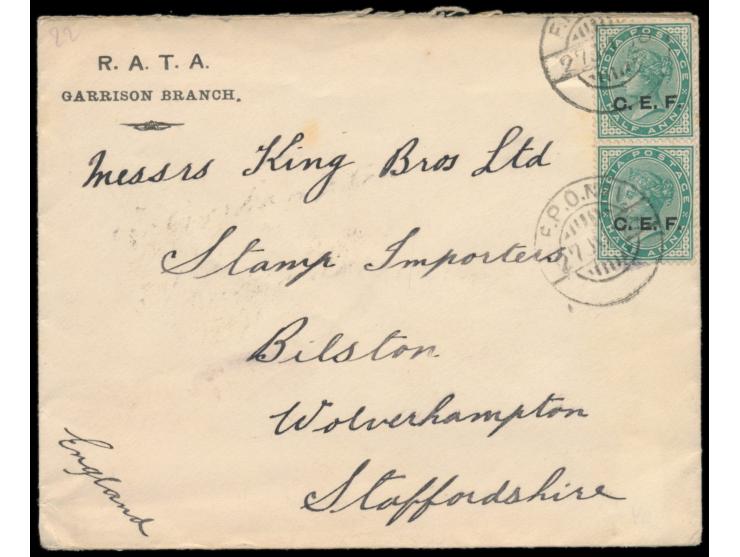 22
R. A. T. A.
GARRISON BRANCH.
Messrs King Bros Ltd
Stamp Importers
Bilston
Wolverhampton
Staffordshire
England
INDIA POSTAGE
C. E. F
HALF ANNA
INDIA POSTAGE
C. E. F
HALF ANNA
F.P.O. No
27